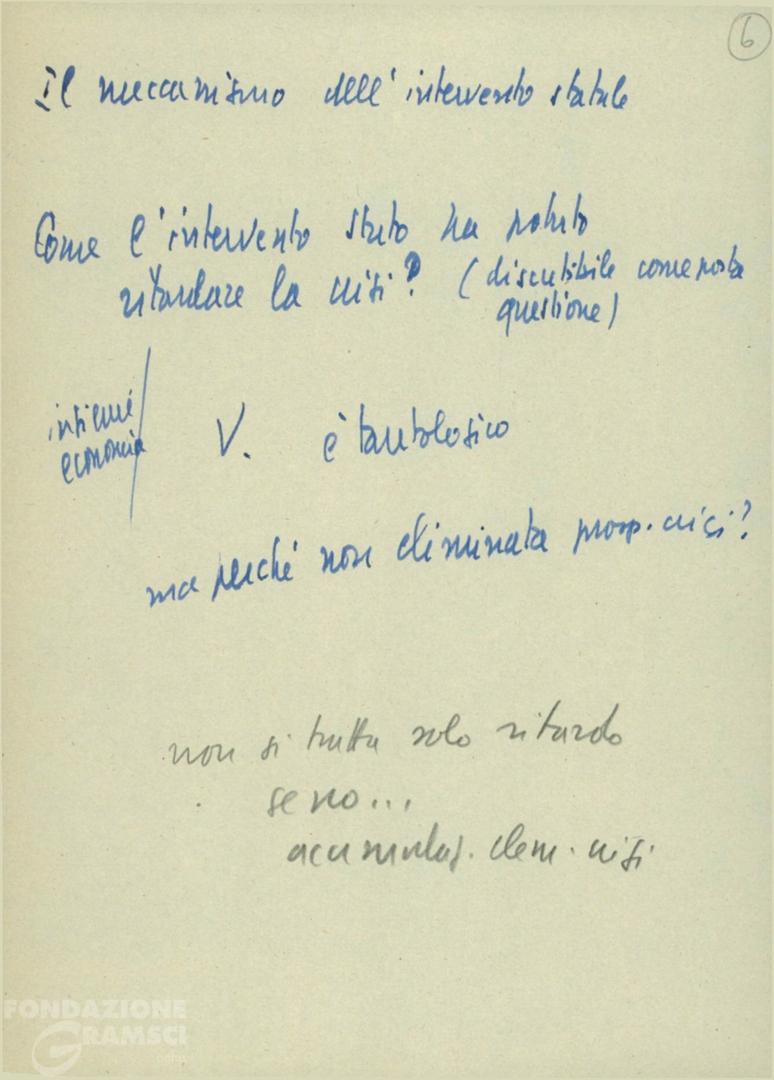 6
Il meccanismo dell'intervento statale
Come l'intervento stato ha potuto
ritardare la crisi? (discutibile come posta
questione)
insieme
economia
V. è tautologico
ma perché non eliminata prosp. crisi?
non si tratta solo ritardo
se no...
accumulaz. elem. crisi
FONDAZIONE
GRAMSCI